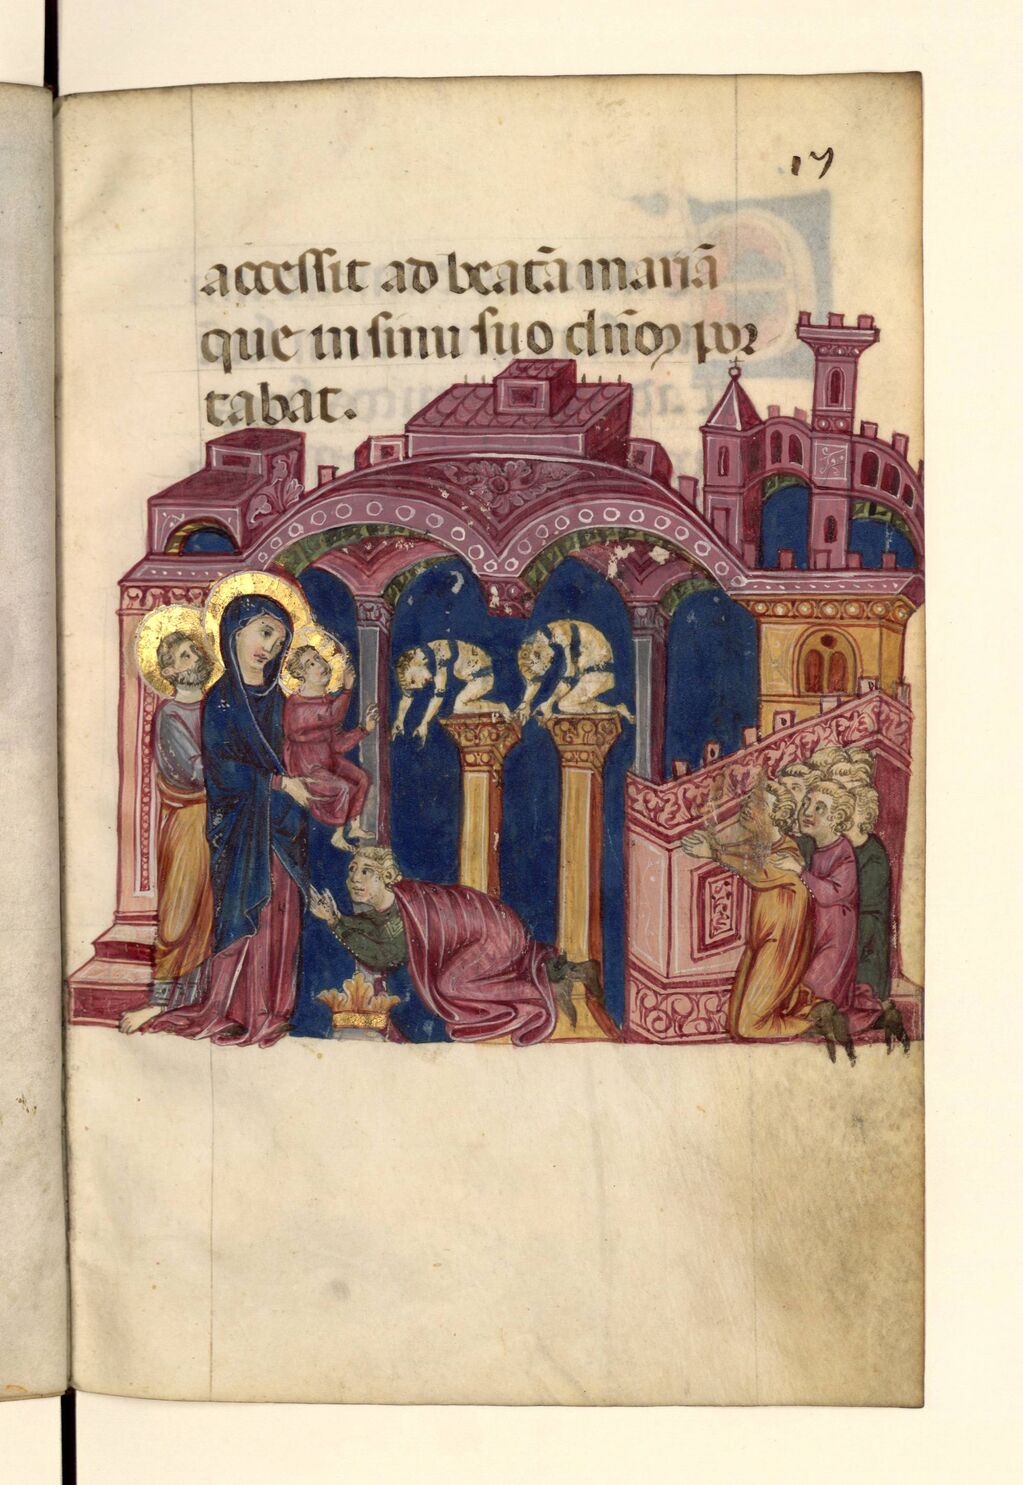 17
accessit ad beatā mariā
que in sinu suo dn̄oꝫ por
tabat.